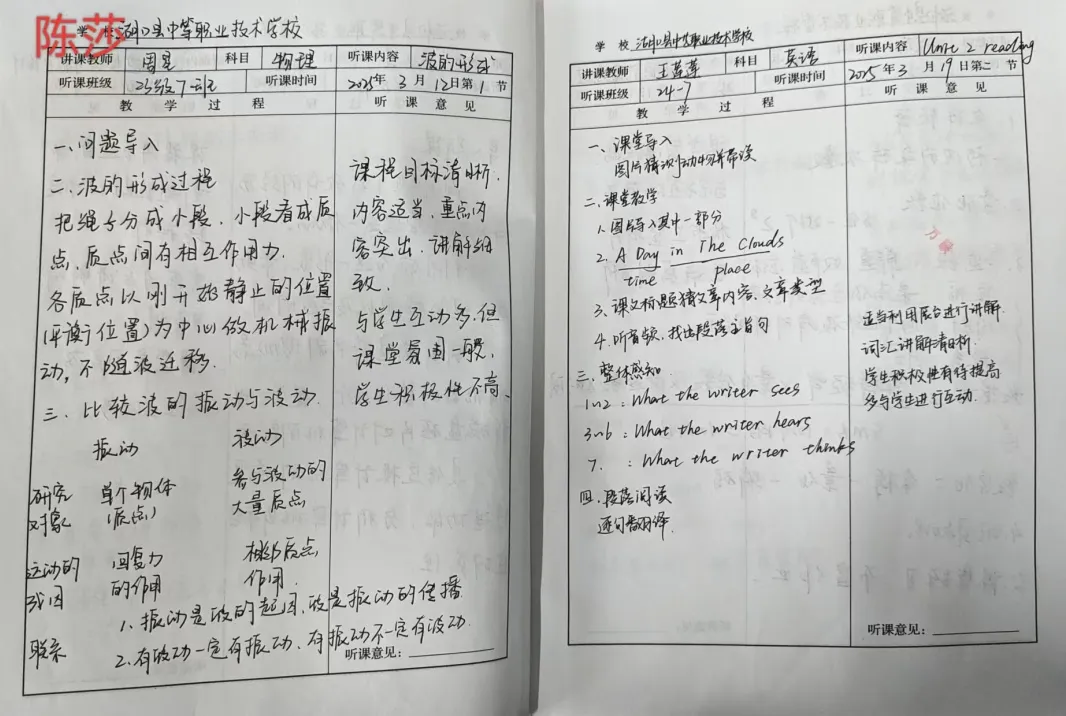 陈莎
学 校 湖口县中等职业技术学校
讲课教师 周 科目 物理 听课内容 波的形成
听课班级 23级7班 听课时间 2025年 3 月 12日第 1 节
教 学 过 程 听 课 意 见
一、问题导入
二、波的形成过程
把绳子分成小段,小段看成质
点,质点间有相互作用力.
各质点以刚开始静止的位置
(平衡位置)为中心做机械振
动,不随波迁移.
三、比较波的振动与波动.
振动 波动
研究对象 单个物体(质点) 参与波动的大量质点
运动的成因 回复力的作用 相邻质点作用.
联系 1、振动是波的起因,波是振动的传播
2.有波动一定有振动,有振动不一定有波动.
课程目标清晰.
内容适当,重点内
容突出,讲解细
致.
与学生互动多.但
课堂氛围一般,
学生积极性不高、
听课意见:
学 校 湖口县中等职业技术学校
讲课教师 王 科目 英语 听课内容 Unit 2 reading
听课班级 24-7 听课时间 2025年 3 月 19日第二节
教 学 过 程 听 课 意 见
一、课堂导入
图片猜识动物并带读
二、课堂教学
1.图片导入其中一部分
2. A Day in The Clouds
time place
3、课文标题猜文章内容、文章类型
4、听音频,找出段落主旨句
三、整体感知
1~2: What the writer sees
3~6: What the writer hears
7. : What the writer thinks
四、段落阅读
逐句翻译.
适当利用展台进行讲解.
词汇讲解清晰.
学生积极性有待提高
多与学生进行互动.
听课意见: